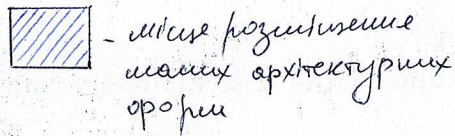 - місце розміщення
малих архітектурних
форм